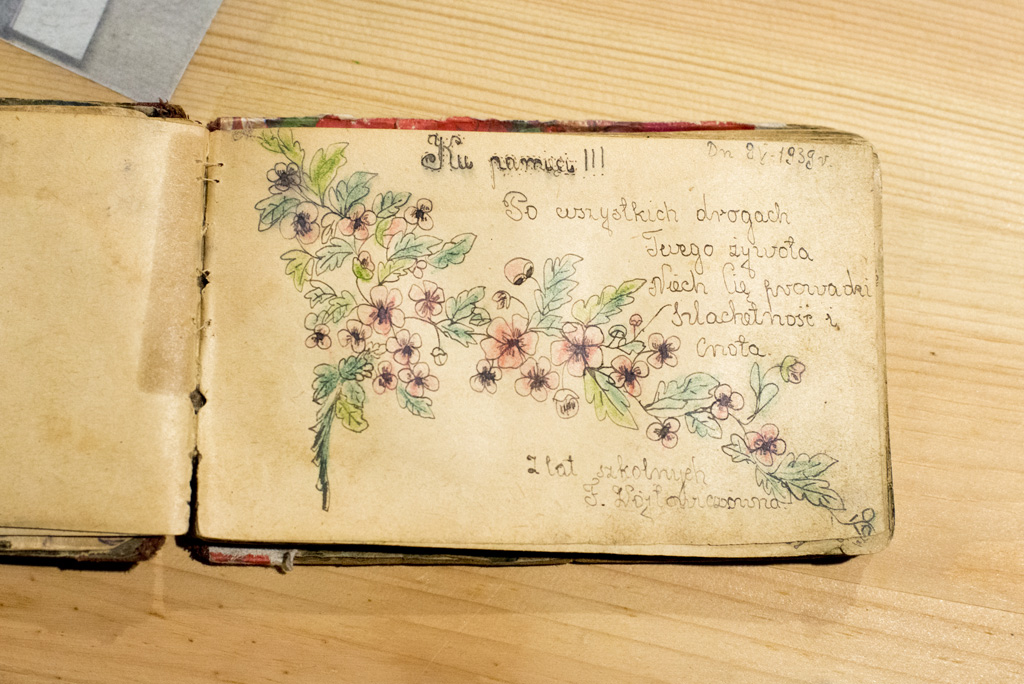 Ku pamięci !!!
Dn 8V-1939 r.
Po wszystkich drogach
Twego żywota
Niech Cię prowadzi
Szlachetność i
Cnota.
Z lat szkolnych